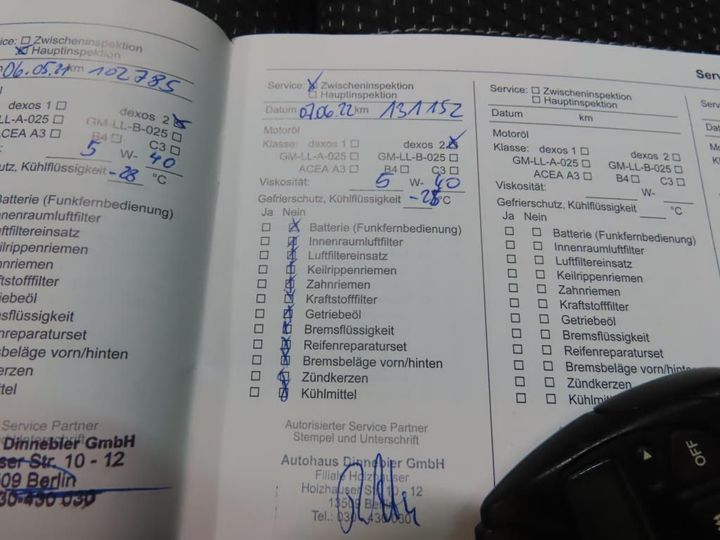 Service: Zwischeninspektion
Hauptinspektion
06.05.21 km 102785
dexos 1 dexos 2
GM-LL-B-025
ACEA A3 B4 C3
5 W- 40
Kühlflüssigkeit -28 °C
Batterie (Funkfernbedienung)
Dinnebler GmbH
Str. 10 - 12
Berlin
Service: Zwischeninspektion
Hauptinspektion
Datum 07.06.22 km 131152
Motoröl
Klasse: dexos 1 dexos 2
GM-LL-A-025 GM-LL-B-025
ACEA A3 B4 C3
Viskosität: 5 W- 40
Gefrierschutz, Kühlflüssigkeit -28 °C
Ja Nein
Batterie (Funkfernbedienung)
Innenraumluftfilter
Luftfiltereinsatz
Keilrippenriemen
Zahnriemen
Kraftstofffilter
Getriebeöl
Bremsflüssigkeit
Reifenreparaturset
Bremsbeläge vorn/hinten
Zündkerzen
Kühlmittel
Autorisierter Service Partner
Stempel und Unterschrift
Autohaus Dinnebier GmbH
Filiale Holzhauser
Holzhauser Str. 10 - 12
Berlin
Tel.:
Service: Zwischeninspektion
Hauptinspektion
Datum km
Motoröl
Klasse: dexos 1 dexos 2
GM-LL-A-025 GM-LL-B-025
ACEA A3 B4 C3
Viskosität: W-
Gefrierschutz, Kühlflüssigkeit °C
Ja Nein
Batterie (Funkfernbedienung)
Innenraumluftfilter
Luftfiltereinsatz
Keilrippenriemen
Zahnriemen
Kraftstofffilter
Getriebeöl
Bremsflüssigkeit
Reifenreparaturset
Bremsbeläge vorn/
Zündkerzen
OFF